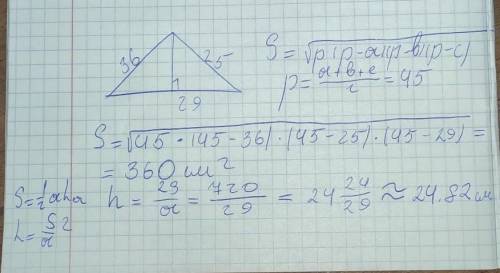 36
25
29
S = √p(p-a)(p-b)(p-c)
p = a+b+c/2 = 45
S = √45 · (45-36) · (45-25) · (45-29) =
= 360 см²
S = 1/2 aha
h = 2S/a = 720/29 = 24 24/29 ≈ 24.82 см